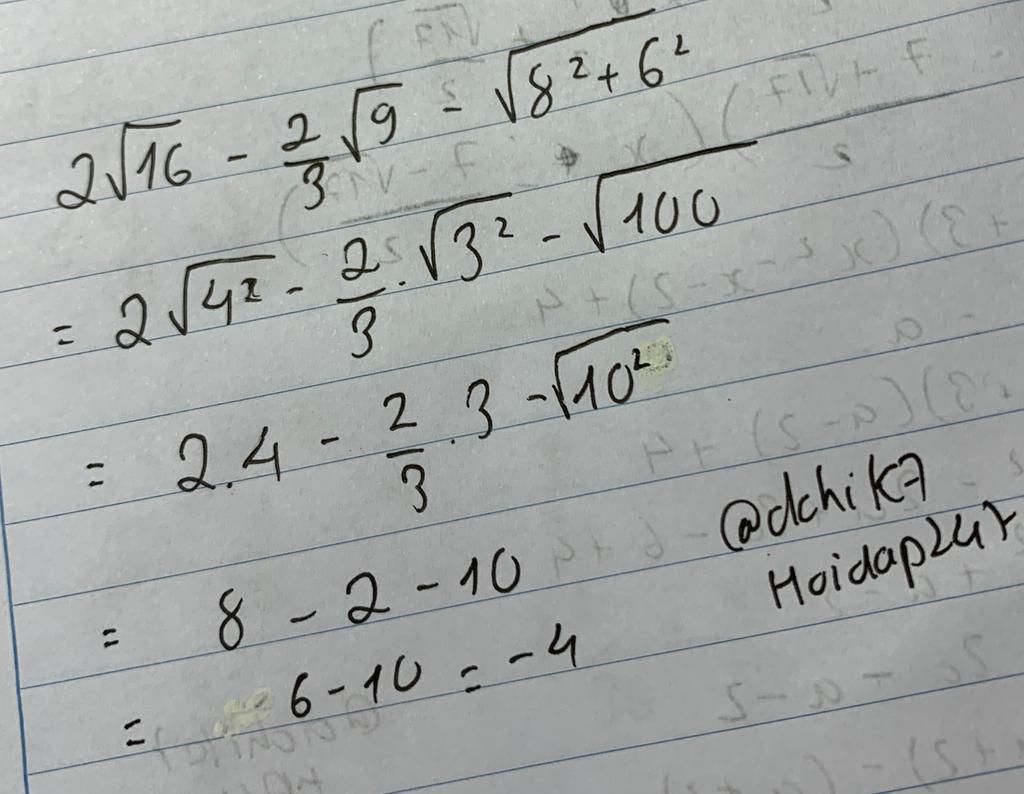 2√16 - 2/3 √9 - √(8² + 6²)
= 2√(4²) - 2/3 . √(3²) - √100
= 2.4 - 2/3 . 3 - √(10²)
= 8 - 2 - 10
= 6 - 10 = -4
@dchik7
Hoidap247